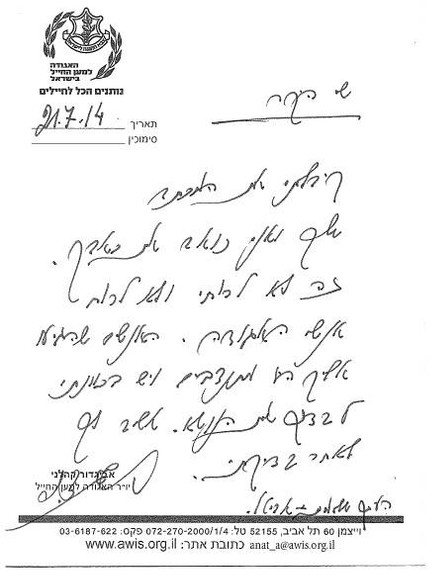 האגודה
למען החייל
בישראל
נותנים הכל לחיילים
תאריך 21.7.14
סימוכין
שי היקר
קיבלתי את המכתב
שלך ואני כואב את כאבך.
זה לא לרוחי ולא לרוח
אנשי האגודה. האנשים שהגיעו
אליך היו מתנדבים ויש בכוונתי
לבדוק את הנושא. אשיב לך
לאחר בדיקתי.
אביגדור קהלני
יו"ר האגודה למען החייל
העתק
וייצמן 60 תל אביב, 52155 טל: 072-270-2000/1/4 פקס: 03-6187-622
anat_a@awis.org.il כתובת אתר: www.awis.org.il